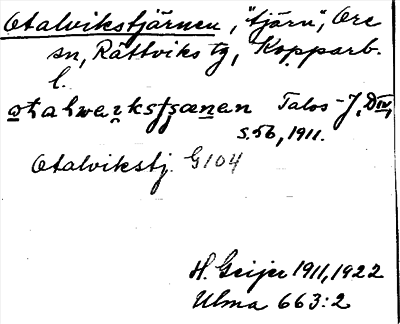 Otalvikstjärnen, "tjärn", Ore
sn, Rättviks tg, Kopparb.
l.
otalwekstjænan Talos-J, DIV,
s.56, 1911.
Otalvikstj. G104
H. Geijer 1911, 1922
Ulma 663:2